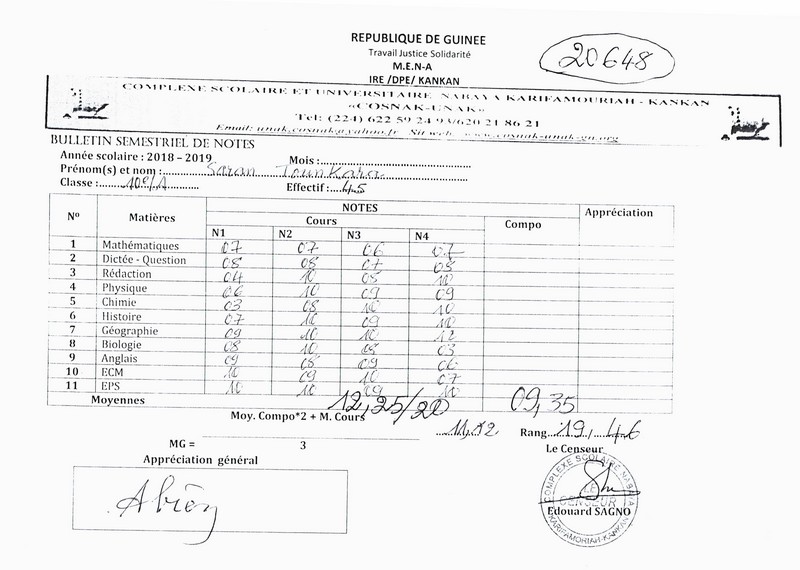 REPUBLIQUE DE GUINEE
Travail Justice Solidarité
M.E.N-A
IRE /DPE/ KANKAN
20648
COMPLEXE SCOLAIRE ET UNIVERSITAIRE NABAYA KARIFAMOURIAH - KANKAN
«COSNAK-UNAK»
Tel: (224) 622 59 24 93/620 21 86 21
Email: unak.cosnak@yahoo.fr Sit web. www.cosnak-unak-gn.org
BULLETIN SEMESTRIEL DE NOTES
Année scolaire : 2018 – 2019 Mois :
Prénom(s) et nom : Saran Tounkara
Classe : 10e/A Effectif : 45
N° Matières NOTES Appréciation
Cours Compo
N1 N2 N3 N4
1 Mathématiques 07 07 06 07
2 Dictée - Question 08 08 07 08
3 Rédaction 04 10 08 10
4 Physique 06 10 09 09
5 Chimie 03 08 10 10
6 Histoire 07 10 09 10
7 Géographie 09 10 10 12
8 Biologie 08 10 08 03
9 Anglais 09 08 09 06
10 ECM 10 09 10 07
11 EPS 10 10 09 10
Moyennes 12,25/20 09,35
Moy. Compo*2 + M. Cours
MG = 3 Rang 19, 46
Appréciation général Le Censeur
Abien
COMPLEXE SCOLAIRE NABAYA
CENSEUR
Edouard SAGNO
KARIFAMORIAH-KANKAN